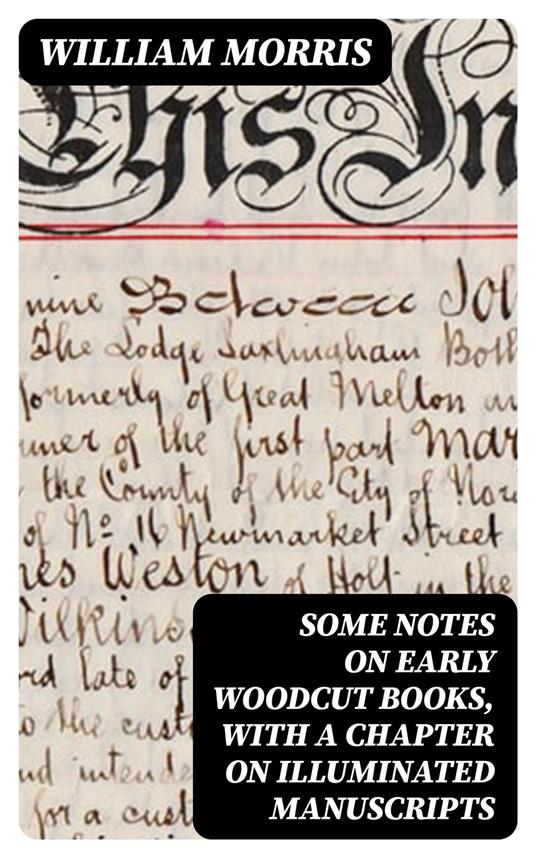 WILLIAM MORRIS
This In
nine Between Joh
The Lodge Saxlingham Both
formerly of Great Melton an
of the first part Mar
the County of the City of Nor
of No 16 Newmarket Street
Weston of Holt in the
Wilkins
late of
SOME NOTES
ON EARLY
to the cust
WOODCUT BOOKS,
WITH A CHAPTER
intende
ON ILLUMINATED
for a cust
MANUSCRIPTS